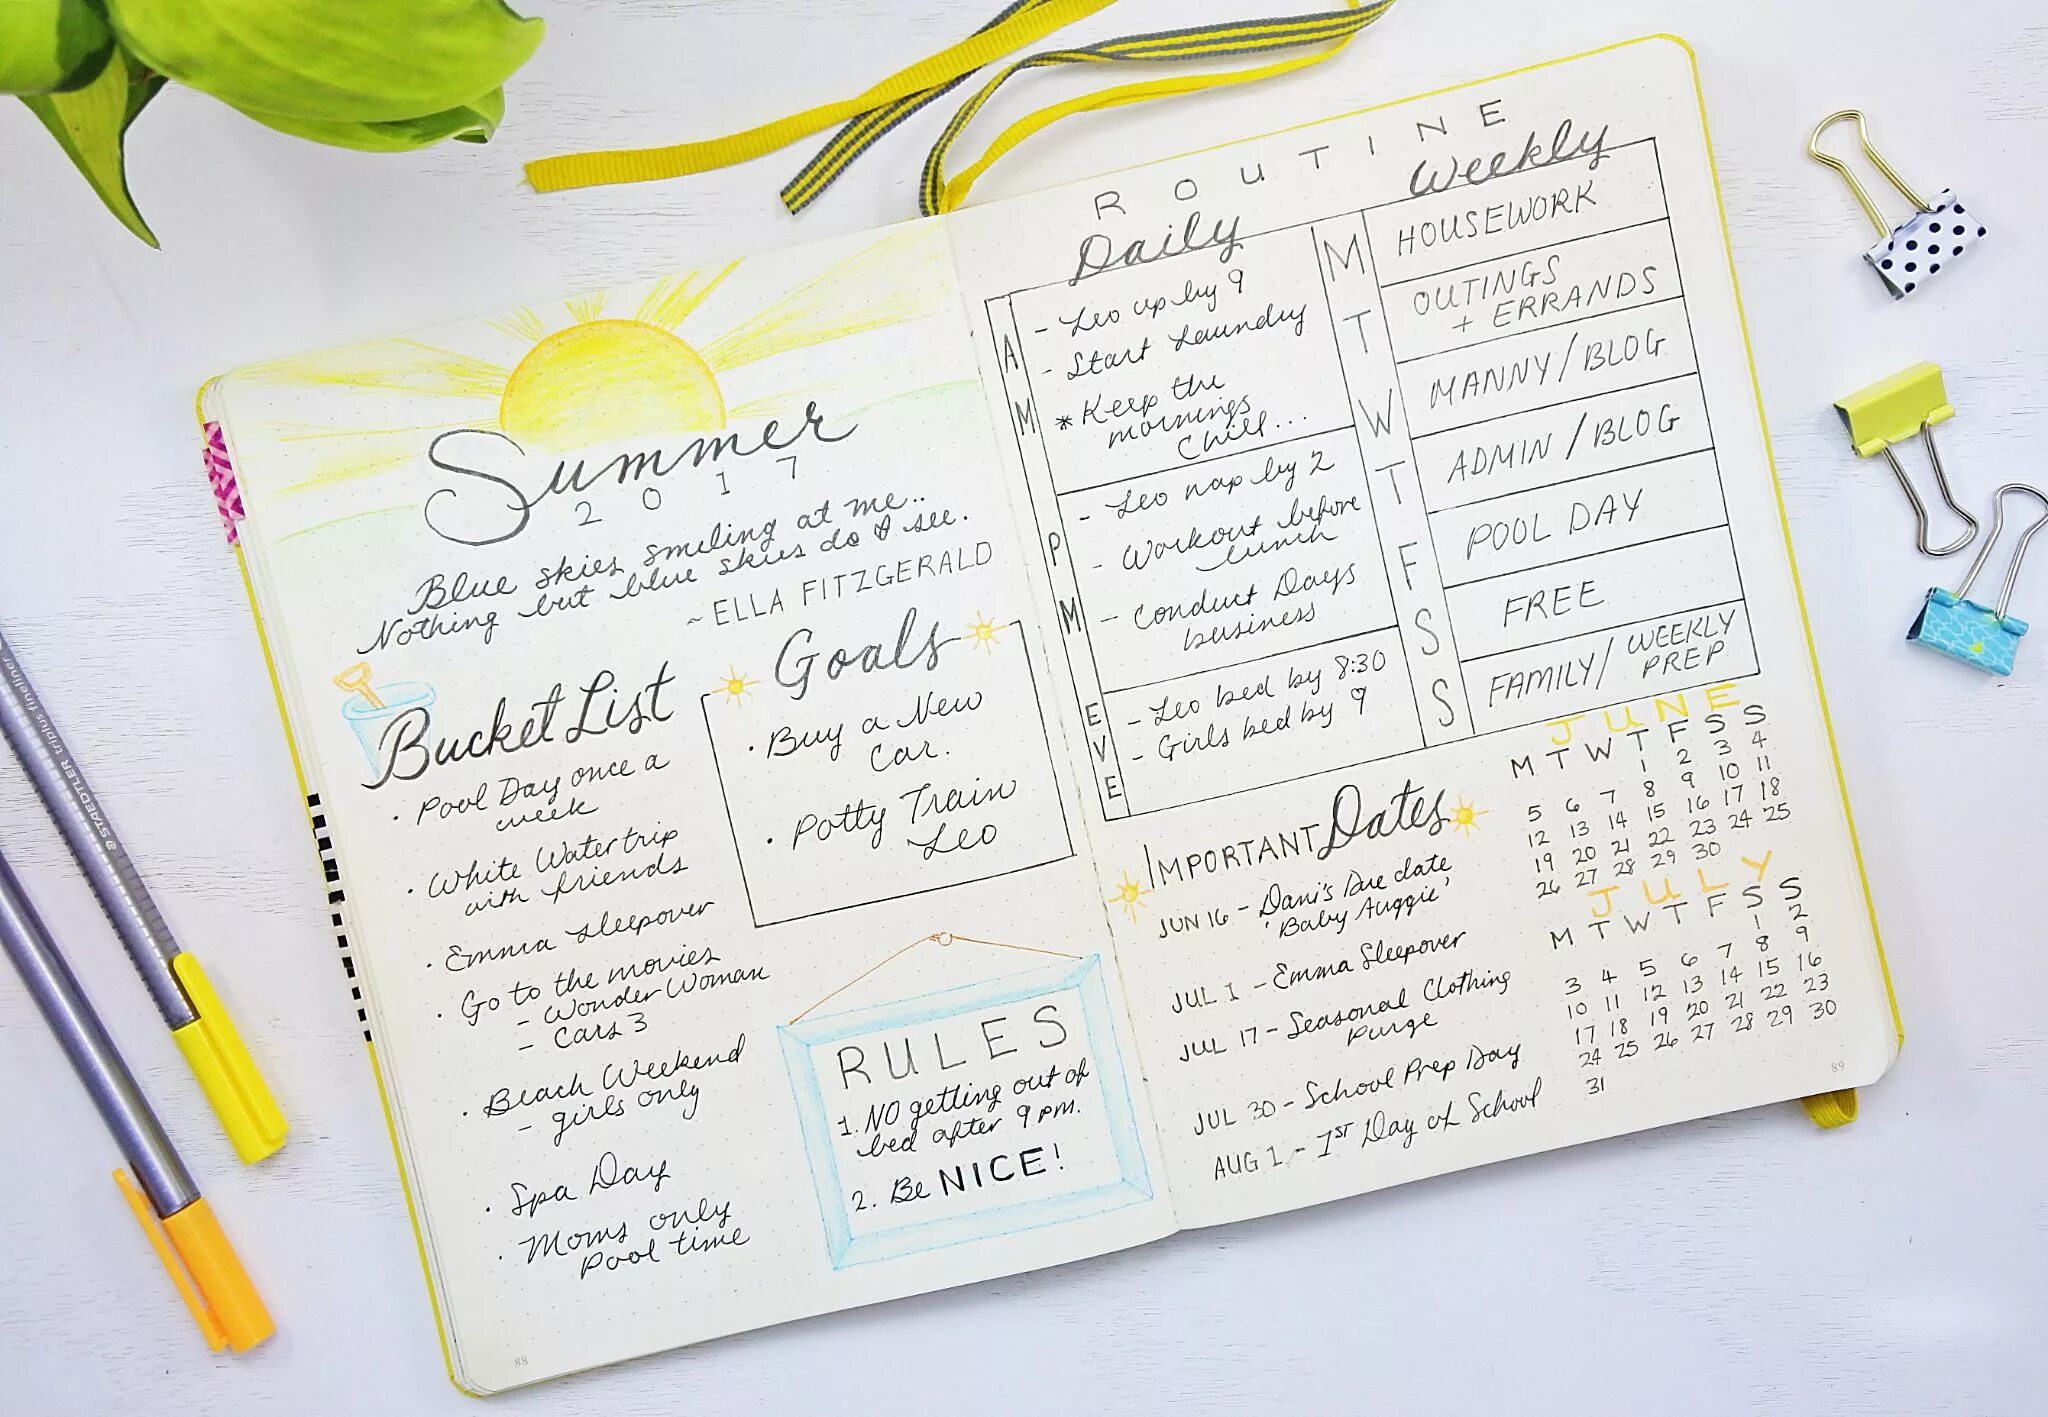 Summer
2017
Blue skies smiling at me..
Nothing but blue skies do I see.
~ELLA FITZGERALD
Bucket List
· Pool Day once a
week
· White Water trip
with friends
· Emma Sleepover
· Go to the movies
- Wonder Woman
- Cars 3
· Beach Weekend
- girls only
· Spa Day
· Moms only
pool time
Goals
· Buy a New
Car.
· Potty Train
Leo
RULES
1. NO getting out of
bed after 9 pm.
2. Be NICE!
88
ROUTINE
Daily
AM
- Leo up by 9
- Start Laundry
* Keep the
mornings
Chill...
PM
- Leo nap by 2
- Workout before
lunch
- Conduct Days
business
EVE
- Leo bed by 8:30
- Girls bed by 9
Weekly
M HOUSEWORK
T OUTINGS
+ ERRANDS
W MANNY/BLOG
T ADMIN/BLOG
F POOL DAY
S FREE
S FAMILY/WEEKLY
PREP
IMPORTANT Dates
JUN 16 - Dani's Due date
'Baby Auggie'
JUL 1 - Emma Sleepover
JUL 17 - Seasonal Clothing
Purge
JUL 30 - School Prep Day
AUG 1 - 1ST Day of School
JUNE
M T W T F S S
1 2 3 4
5 6 7 8 9 10 11
12 13 14 15 16 17 18
19 20 21 22 23 24 25
26 27 28 29 30
JULY
M T W T F S S
1 2
3 4 5 6 7 8 9
10 11 12 13 14 15 16
17 18 19 20 21 22 23
24 25 26 27 28 29 30
31
89
STAEDTLER triplus fineliner